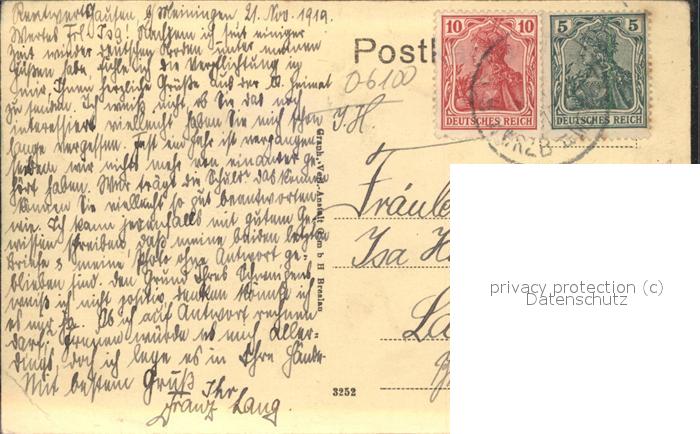 Rentwertshausen, b/ Meiningen 21. Nov. 1919.
Wertes Frl. Isa! Nachdem ich seit einiger
Zeit wieder deutschen Boden unter meinen
Füßen habe, fühle ich die Verpflichtung in
mir, Ihnen herzliche Grüße aus der Heimat
zu senden. Ich weiß nicht, ob Sie das noch
interessiert vielleicht haben Sie mich schon
lange vergessen. Fast ein Jahr ist vergangen
seitdem wir nichts mehr von einander ge-
hört haben. Wer trägt die Schuld das können
können Sie vielleicht so gut beantworten
wie ich kann jedenfalls mit gutem Ge-
wissen schreiben daß meine beiden letzten
Briefe & meine Photo ohne Antwort ge-
blieben sind. den Grund Ihres Schweigens
weiß ich nicht positiv, denken könnte ich
es mir ja. Ob ich auf Antwort rechnen
darf. Freuen würde es mich aller-
dings doch ich lege es in Ihre Hände
Mit bestem Gruß Ihr
Franz Lang
Graph. Verl.-Anstalt G m b H Breslau
3252
Postk
10 10
DEUTSCHES REICH
5 5
DEUTSCHES REICH
06100
Fräule
Isa H
La
privacy protection (c)
Datenschutz